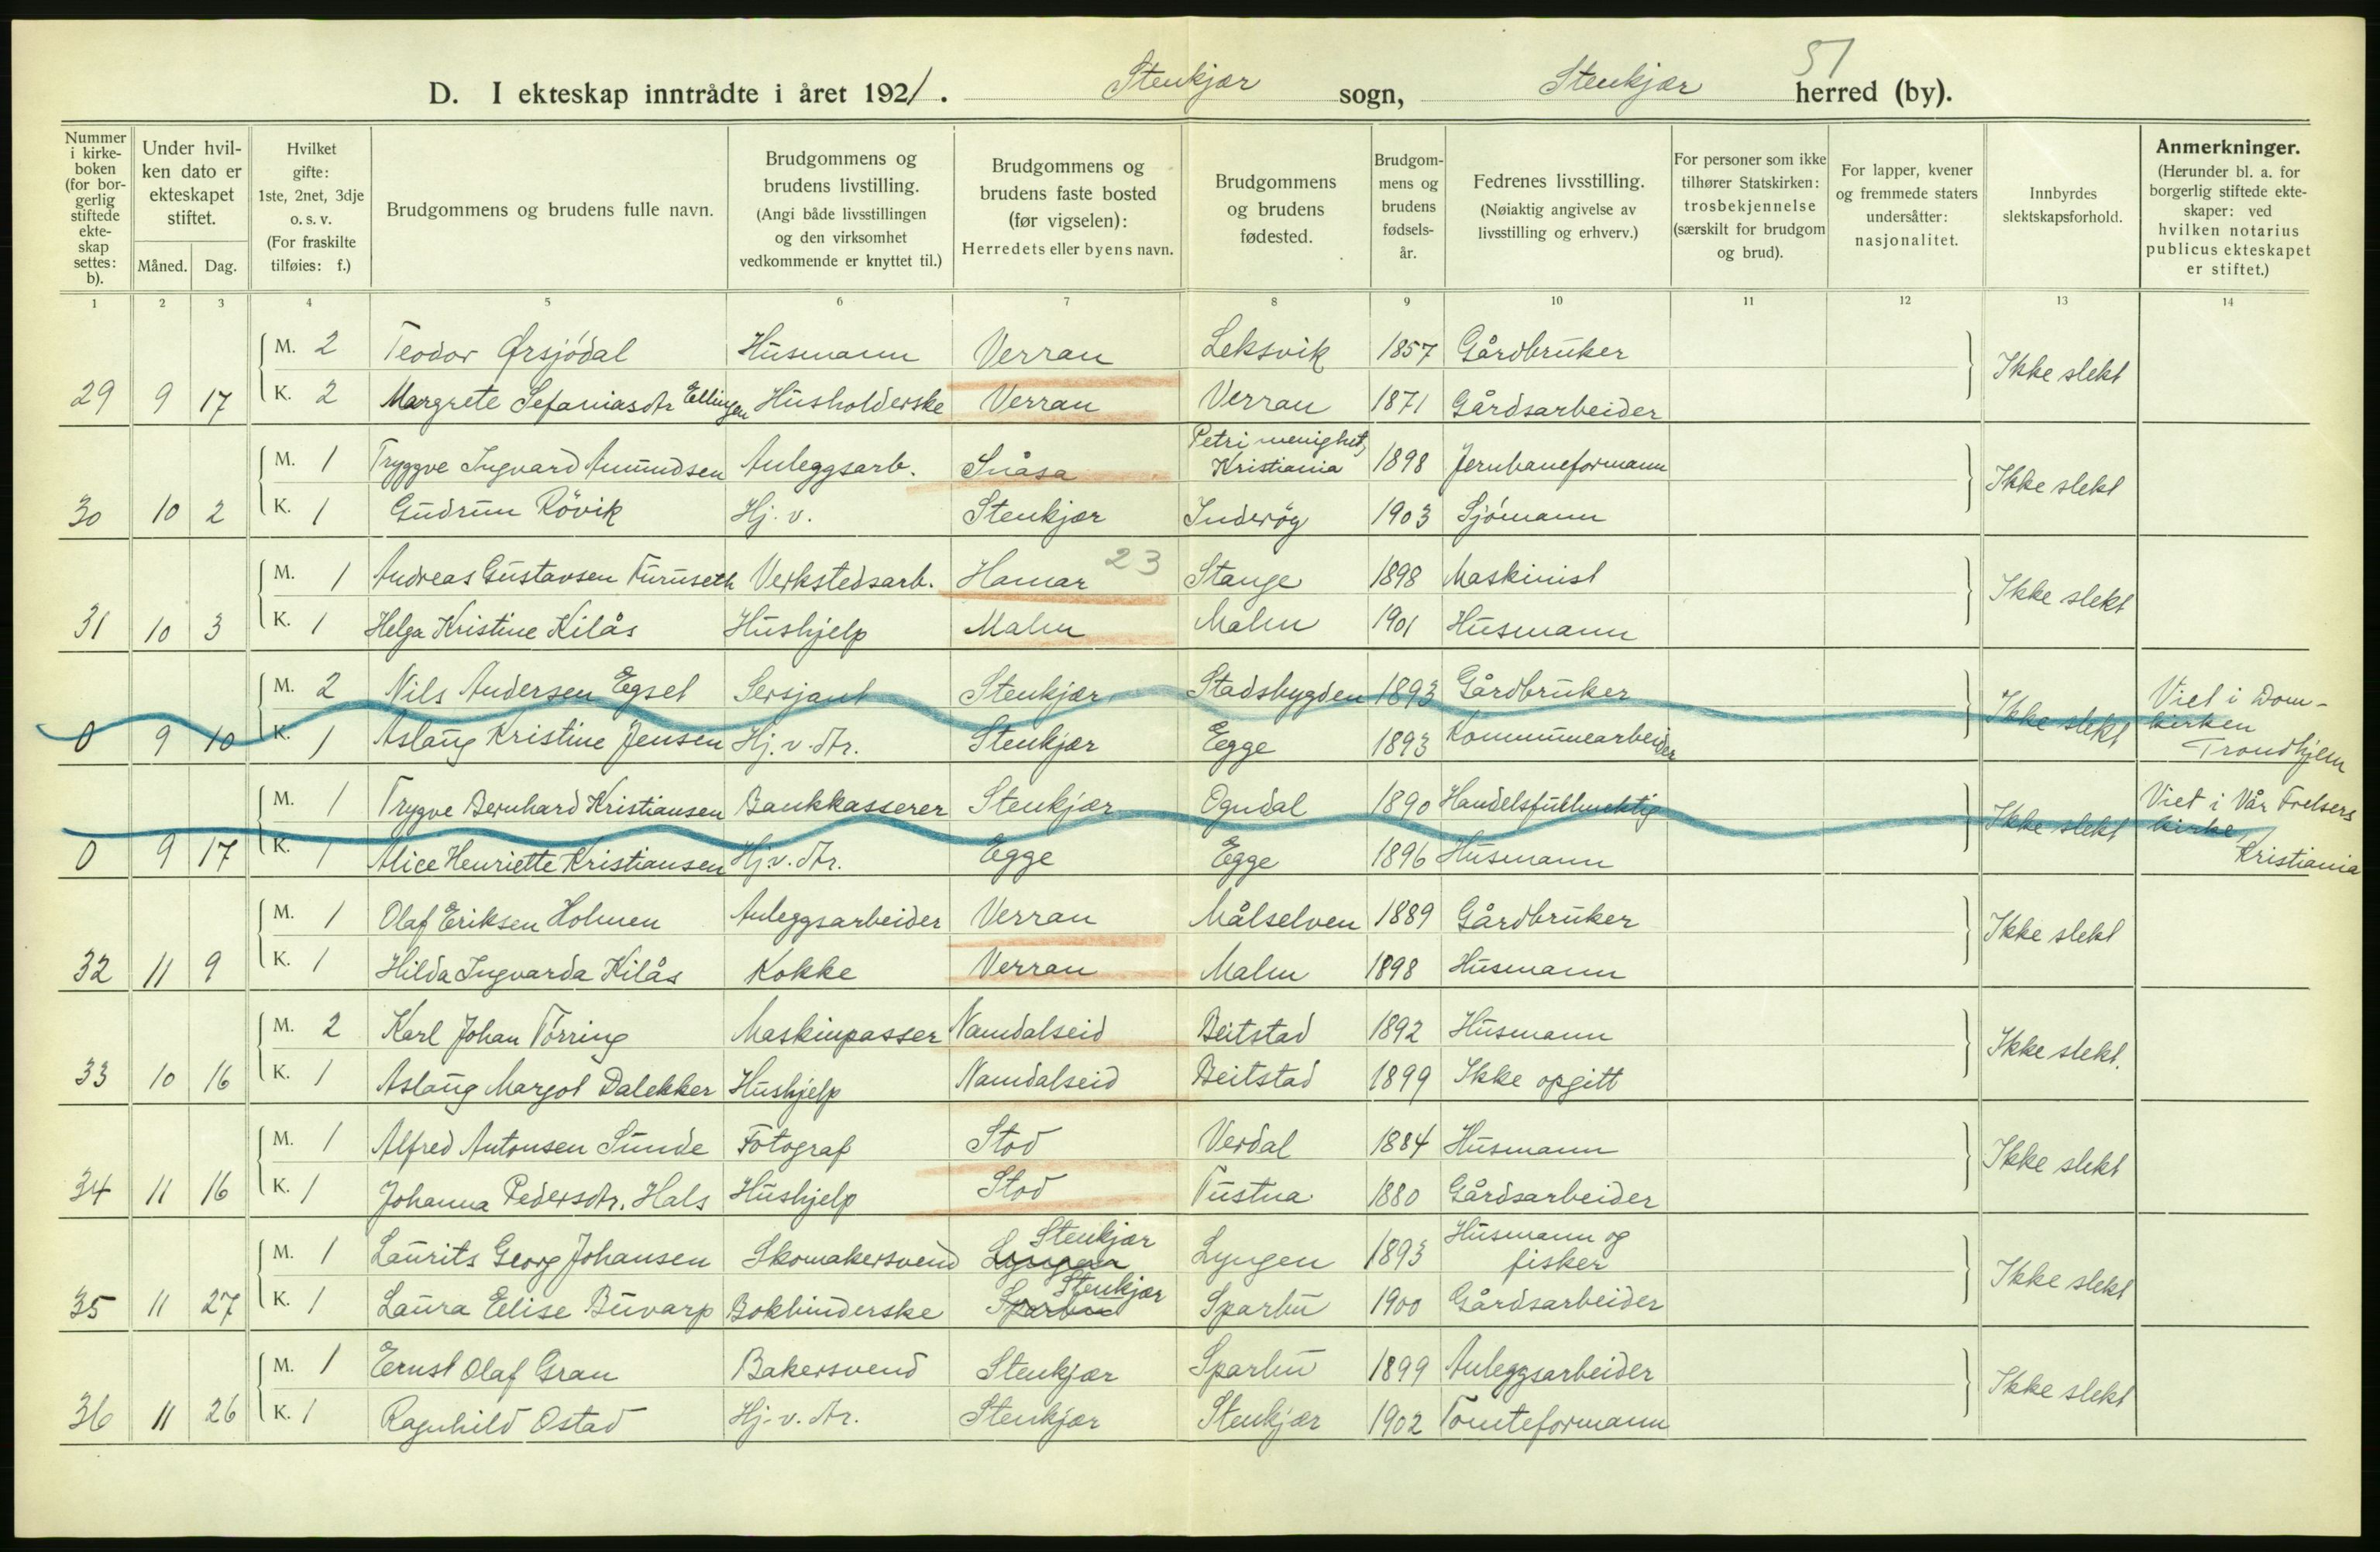 51
D. I ekteskap inntrådte i året 1921. Stenkjær sogn, Stenkjær herred (by).
Nummer i kirkeboken (for borgerlig stiftede ekteskap settes: b).
Under hvilken dato er ekteskapet stiftet.
Måned. Dag.
Hvilket gifte: 1ste, 2net, 3dje o. s. v. (For fraskilte tilføies: f.)
Brudgommens og brudens fulle navn.
Brudgommens og brudens livstilling. (Angi både livsstillingen og den virksomhet vedkommende er knyttet til.)
Brudgommens og brudens faste bosted (før vigselen): Herredets eller byens navn.
Brudgommens og brudens fødested.
Brudgommens og brudens fødselsår.
Fedrenes livsstilling. (Nøiaktig angivelse av livsstilling og erhverv.)
For personer som ikke tilhører Statskirken: trosbekjennelse (særskilt for brudgom og brud).
For lapper, kvener og fremmede staters undersåtter: nasjonalitet.
Innbyrdes slektskapsforhold.
Anmerkninger. (Herunder bl. a. for borgerlig stiftede ekteskaper: ved hvilken notarius publicus ekteskapet er stiftet.)
1 2 3 4 5 6 7 8 9 10 11 12 13 14
M. 2 Teodor Ørsjødal Husmann Verran Leksvik 1857 Gårdbruker Ikke slekt
29 9 17 K. 2 Margrete Sefaniasdtr Ellingen Husholderske Verran Verran 1871 Gårdsarbeider
M. 1 Tryggve Ingvard Amundsen Anleggsarb. Snåsa Petri menighet, Kristiania 1898 Jernbaneformann Ikke slekt
30 10 2 K. 1 Gudrun Røvik Hj. v. Stenkjær Inderøy 1903 Sjømann
M. 1 Andreas Gustavsen Furuseth Verkstedsarb. Hamar 23 Stange 1898 Maskinist Ikke slekt
31 10 3 K. 1 Helga Kristine Kilås Hushjelp Malm Malm 1901 Husmann
M. 2 Nils Andersen Egset Sersjant Stenkjær Stadsbygden 1893 Gårdbruker Ikke slekt Viet i Domkirken Trondhjem
0 9 10 K. 1 Aslaug Kristine Jensen Hj. v. dtr. Stenkjær Egge 1893 Kommunearbeider
M. 1 Trygve Bernhard Kristiansen Bankkasserer Stenkjær Ogndal 1890 Handelsfullmektig Ikke slekt Viet i Vår Frelsers kirke, Kristiania
0 9 17 K. 1 Alice Henriette Kristiansen Hj. v. dtr. Egge Egge 1896 Husmann
M. 1 Olaf Eriksen Holmen Anleggsarbeider Verran Målselven 1889 Gårdbruker Ikke slekt
32 11 9 K. 1 Hilda Ingvarda Kilås Kokke Verran Malm 1898 Husmann
M. 2 Karl Johan Tørring Maskinpasser Namdalseid Beitstad 1892 Husmann Ikke slekt.
33 10 16 K. 1 Aslaug Margot Dalekker Hushjelp Namdalseid Beitstad 1899 Ikke opgitt
M. 1 Alfred Antonsen Sunde Fotograf Stod Verdal 1884 Husmann Ikke slekt
34 11 16 K. 1 Johanna Pedersdtr. Hals Hushjelp Stod Tustna 1880 Gårdsarbeider
M. 1 Laurits Georg Johansen Skomakersvend Lyngen Stenkjær Lyngen 1893 Husmann og fisker Ikke slekt
35 11 27 K. 1 Laura Elise Buvarp Bokbinderske Sparbu Stenkjær Sparbu 1900 Gårdsarbeider
M. 1 Ernst Olaf Gran Bakersvend Stenkjær Sparbu 1899 Anleggsarbeider Ikke slekt
36 11 26 K. 1 Ragnhild Ostad Hj. v. dtr. Stenkjær Stenkjær 1902 Tomteformann